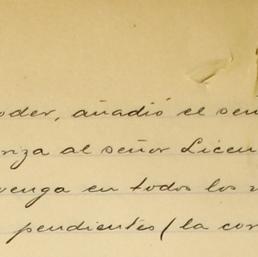 oder, añadió el señ
riza al señor Licen
venga en todos los
pendientes (la cor